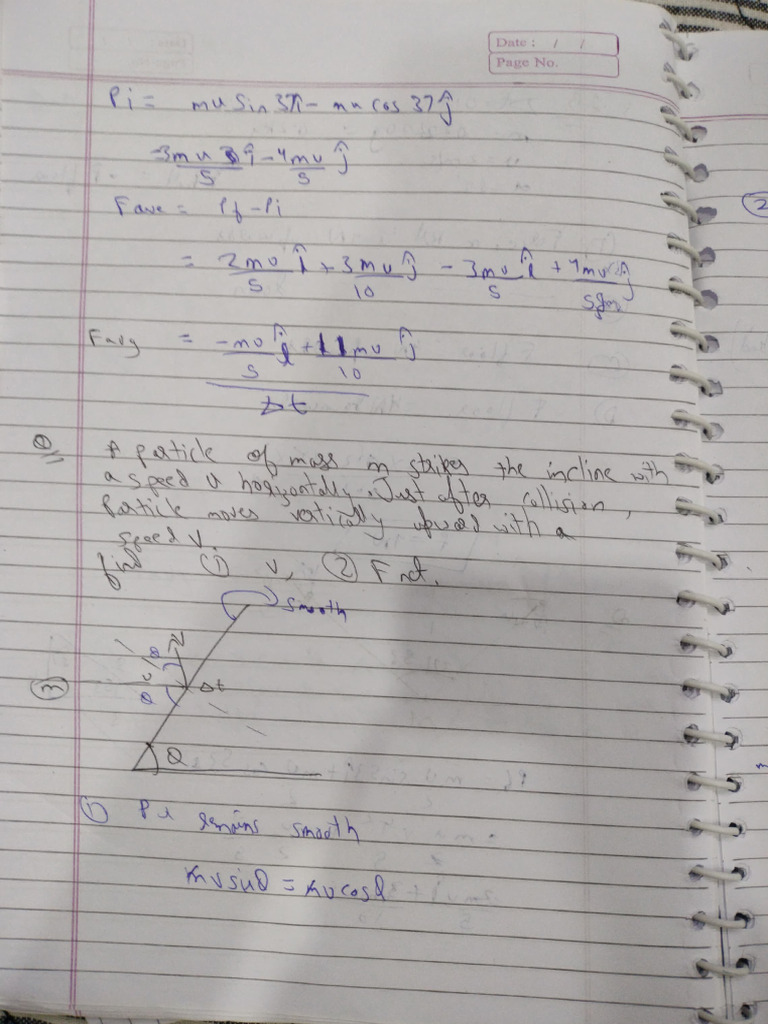 Date : / /
Page No.
Pi = mu sin 37î - mu cos 37 ĵ
= 3mu î - 4mu ĵ
5 5
Fave = Pf - Pi
= 2mu î + 3mu ĵ - 3mu î + 4mu ĵ
5 10 5 5
Favg = -mu î + 11mu ĵ
5 10
Δt
Q
A particle of mass m strikes the incline with
a speed u horizontally. Just after collision,
Particle moves vertically upward with a
speed v.
find (1) v, (2) F net.
smooth
N
θ
u
θ
m
Δt
θ
(i) remains smooth
mv sinθ = mu cosθ
2